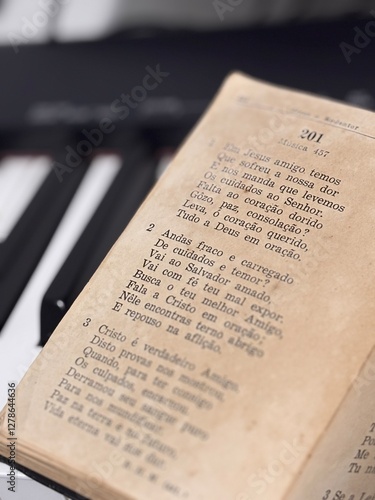 e Redentor
201
Música 457
1 Em Jesus amigo temos
Que sofreu a nossa dor
E nos manda que levemos
Os cuidados ao Senhor.
Falta ao coração dorido
Gôzo, paz, consolação?
Leva, ó coração querido,
Tudo a Deus em oração.
2 Andas fraco e carregado
De cuidados e temor?
Vai ao Salvador amado,
Vai com fé teu mal expor.
Busca o teu melhor Amigo,
Fala a Cristo em oração:
Nêle encontras terno abrigo
E repouso na aflição.
3 Cristo é verdadeiro Amigo.
Disto provas nos mostrou,
Quando, para ter consigo
Os culpados, encarnou.
Derramou seu sangue puro
Paz na terra e no futuro,
Vida eterna
T
Po
Me
Tu
3 Se a L
Adobe Stock
1278644636